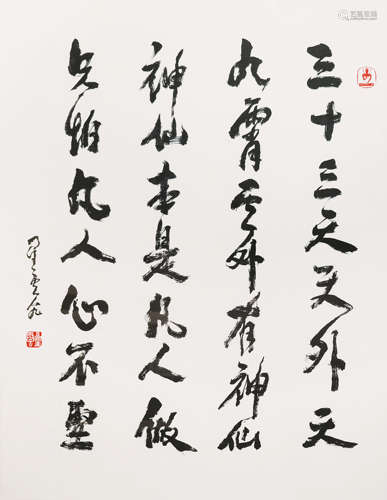 三十三天天外天
九霄云外有神仙
神仙本是凡人做
只怕凡人心不堅